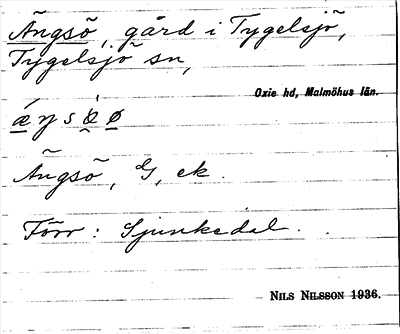 Ängsö, gård i Tygelsjö,
Tygelsjö sn,
Oxie hd, Malmöhus län.
Ängsö, G, ek.
Förr: Sjunkedal.
NILS NILSSON 1936.